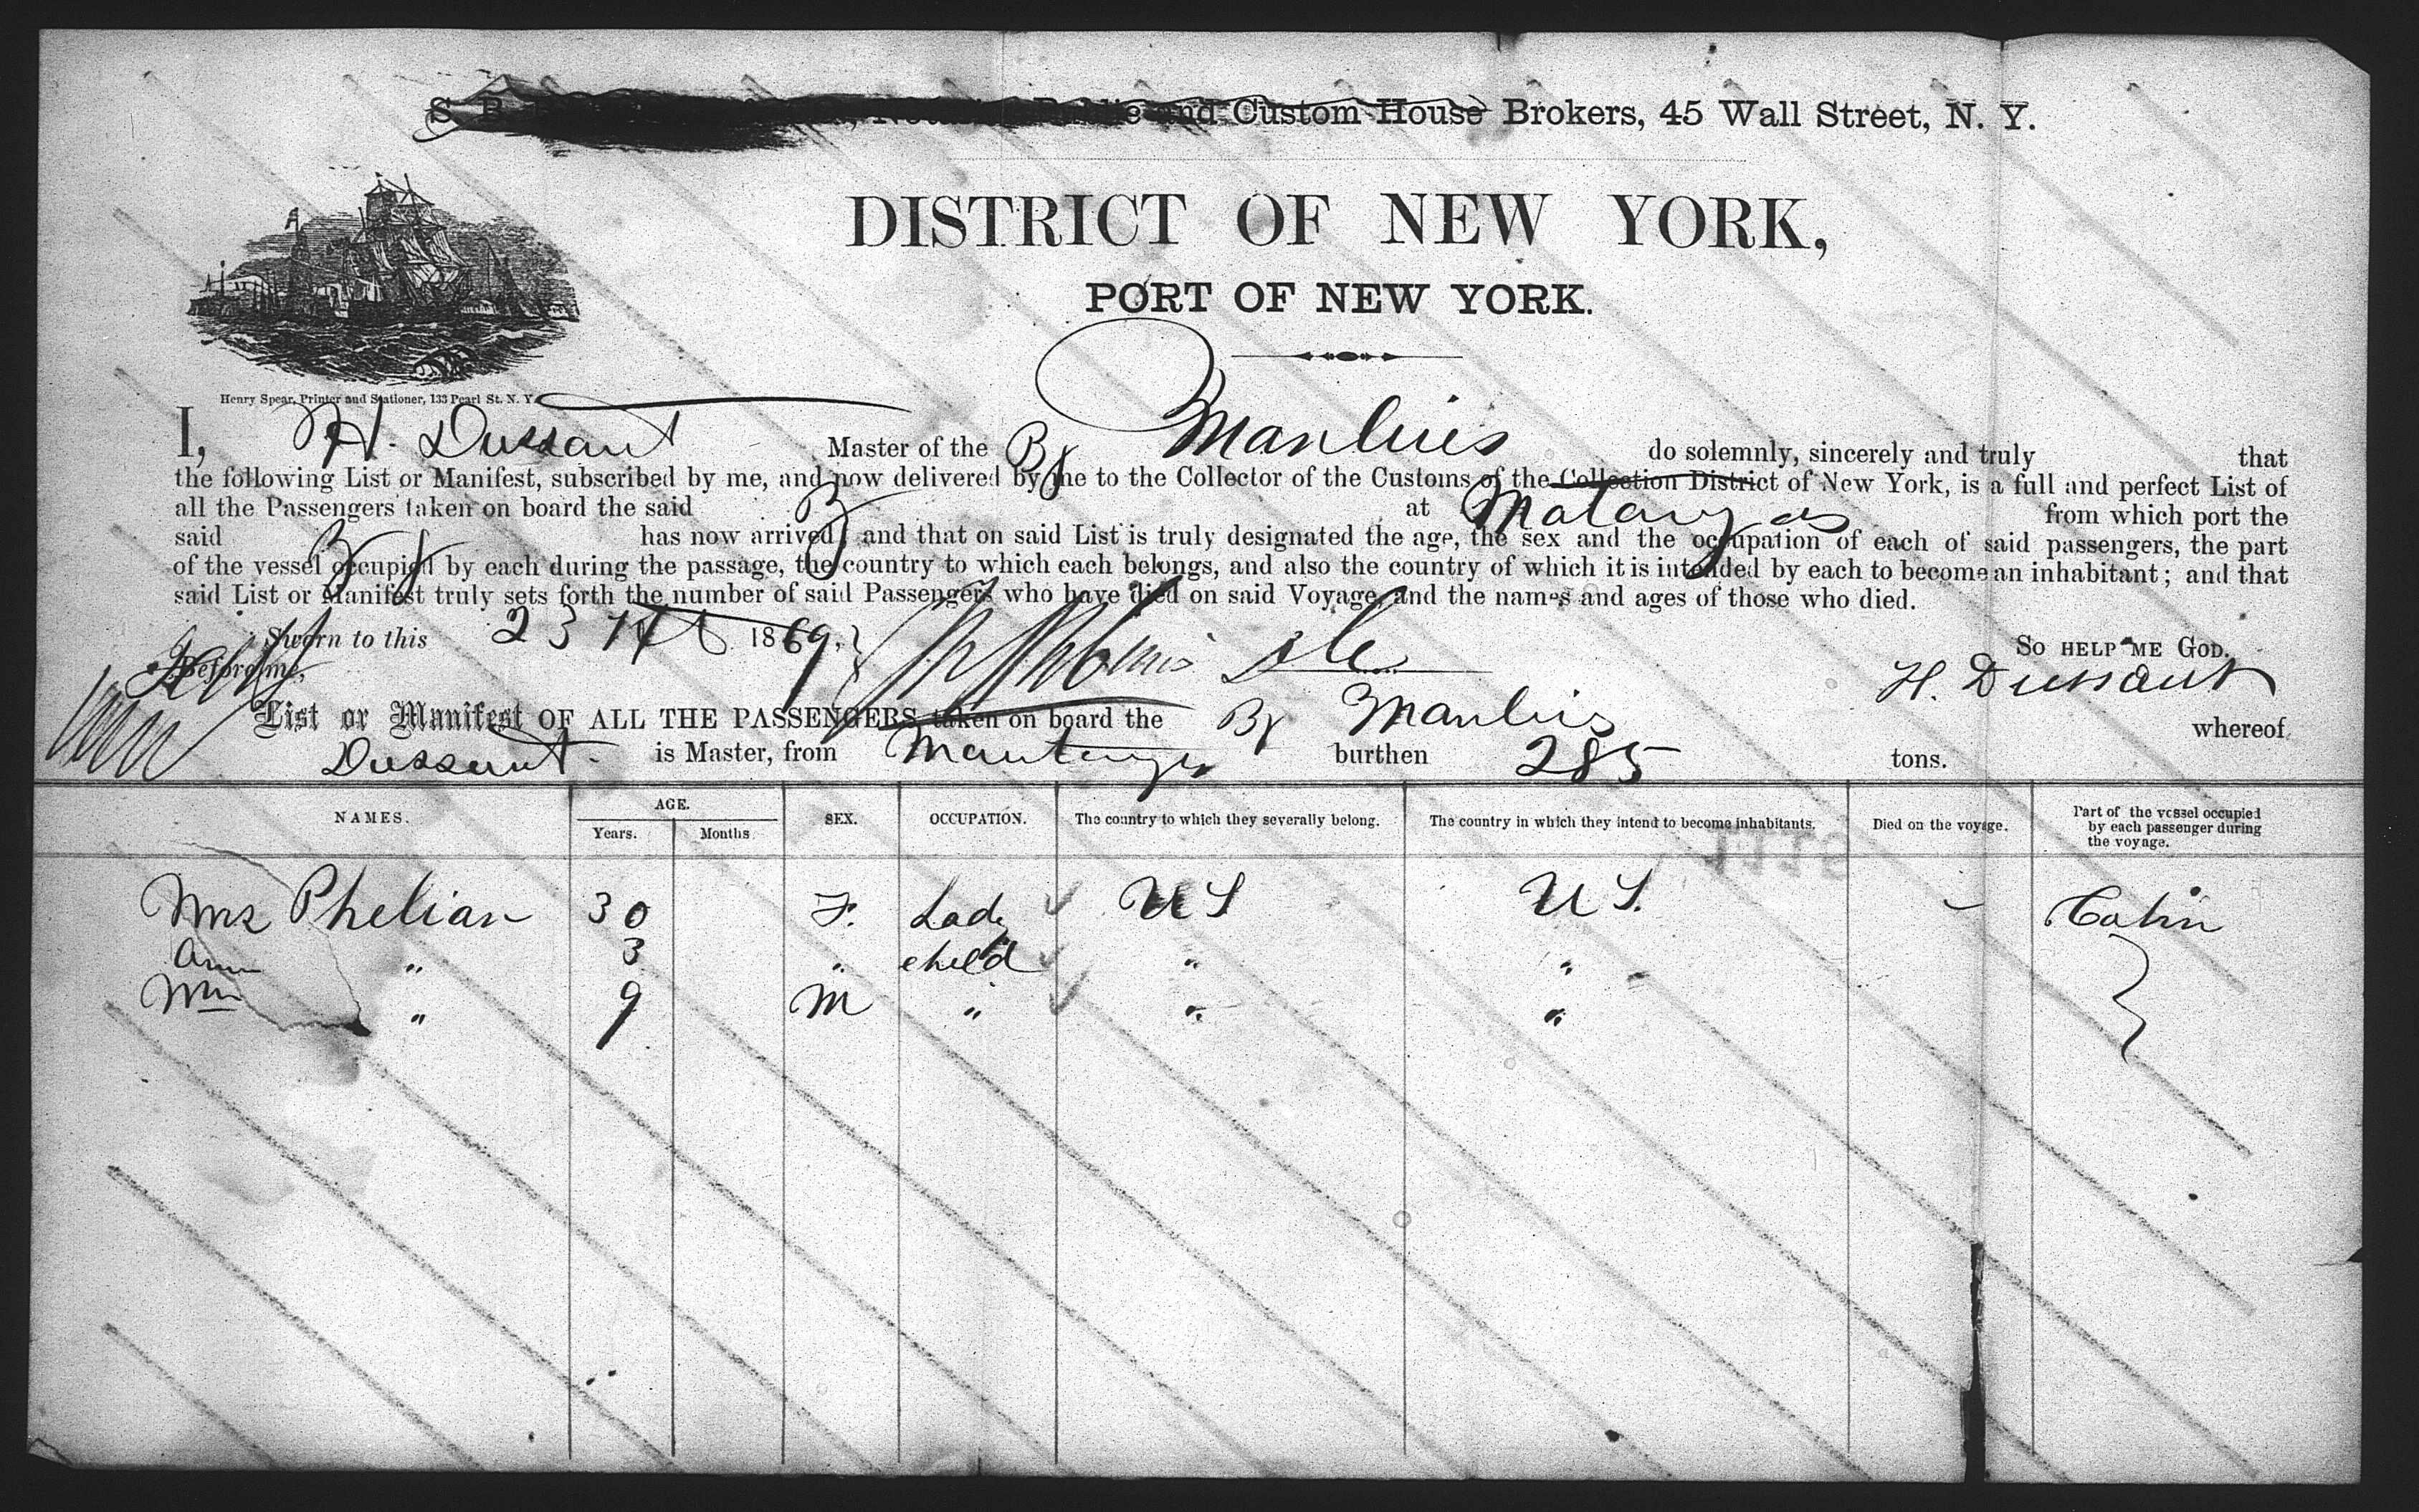 and Custom House Brokers, 45 Wall Street, N. Y.
DISTRICT OF NEW YORK,
PORT OF NEW YORK.
Henry Spear, Printer and Stationer, 133 Pearl St. N. Y.
I, H. Dussant Master of the Bg Manlius do solemnly, sincerely and truly that
the following List or Manifest, subscribed by me, and now delivered by me to the Collector of the Customs of the Collection District of New York, is a full and perfect List of
all the Passengers taken on board the said Bg at Matanzas from which port the
said Bg has now arrived; and that on said List is truly designated the age, the sex and the occupation of each of said passengers, the part
of the vessel occupied by each during the passage, the country to which each belongs, and also the country of which it is intended by each to become an inhabitant; and that
said List or Manifest truly sets forth the number of said Passengers who have died on said Voyage, and the names and ages of those who died.
Sworn to this 23 1869, So HELP ME GOD.
Before me, H. Dussant
List or Manifest OF ALL THE PASSENGERS taken on board the Bg Manlius whereof
Dussant is Master, from Mantanzas burthen 285 tons.
NAMES. AGE. SEX. OCCUPATION. The country to which they severally belong. The country in which they intend to become inhabitants. Died on the voyage. Part of the vessel occupied by each passenger during the voyage.
Years. Months
Mrs Phelian 30 F. Lady US US. - Cabin
Ann " 3 " child " "
Wm " 9 M " " "